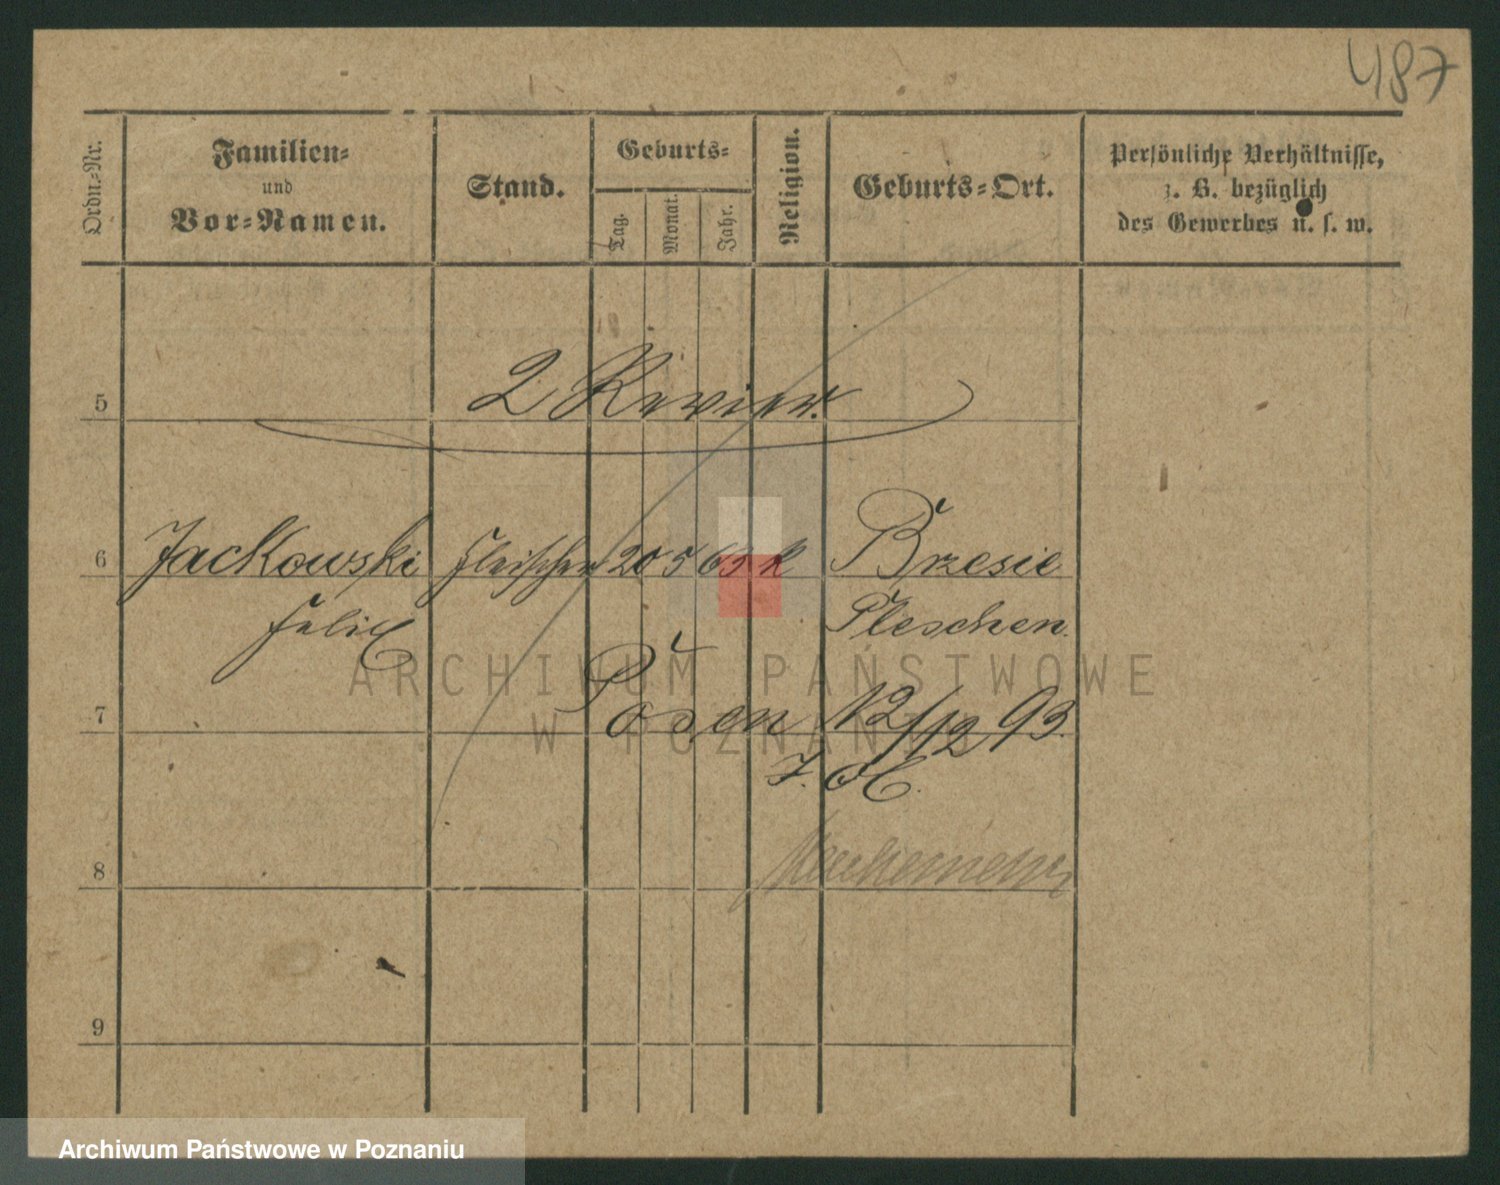 487
Ordn.-Nr.
Familien-
und
Vor-Namen.
Stand.
Geburts-
Tag.
Monat.
Jahr.
Religion.
Geburts-Ort.
Persönliche Verhältnisse,
z. B. bezüglich
des Gewerbes u. s. w.
5
2 Revier.
6 Jackowski Fleischer 20 5 63 k Brzesie
Felix Pleschen.
7 Posen 12/12 93.
8
9
ARCHIWUM PAŃSTWOWE
W POZNANIU
Archiwum Państwowe w Poznaniu